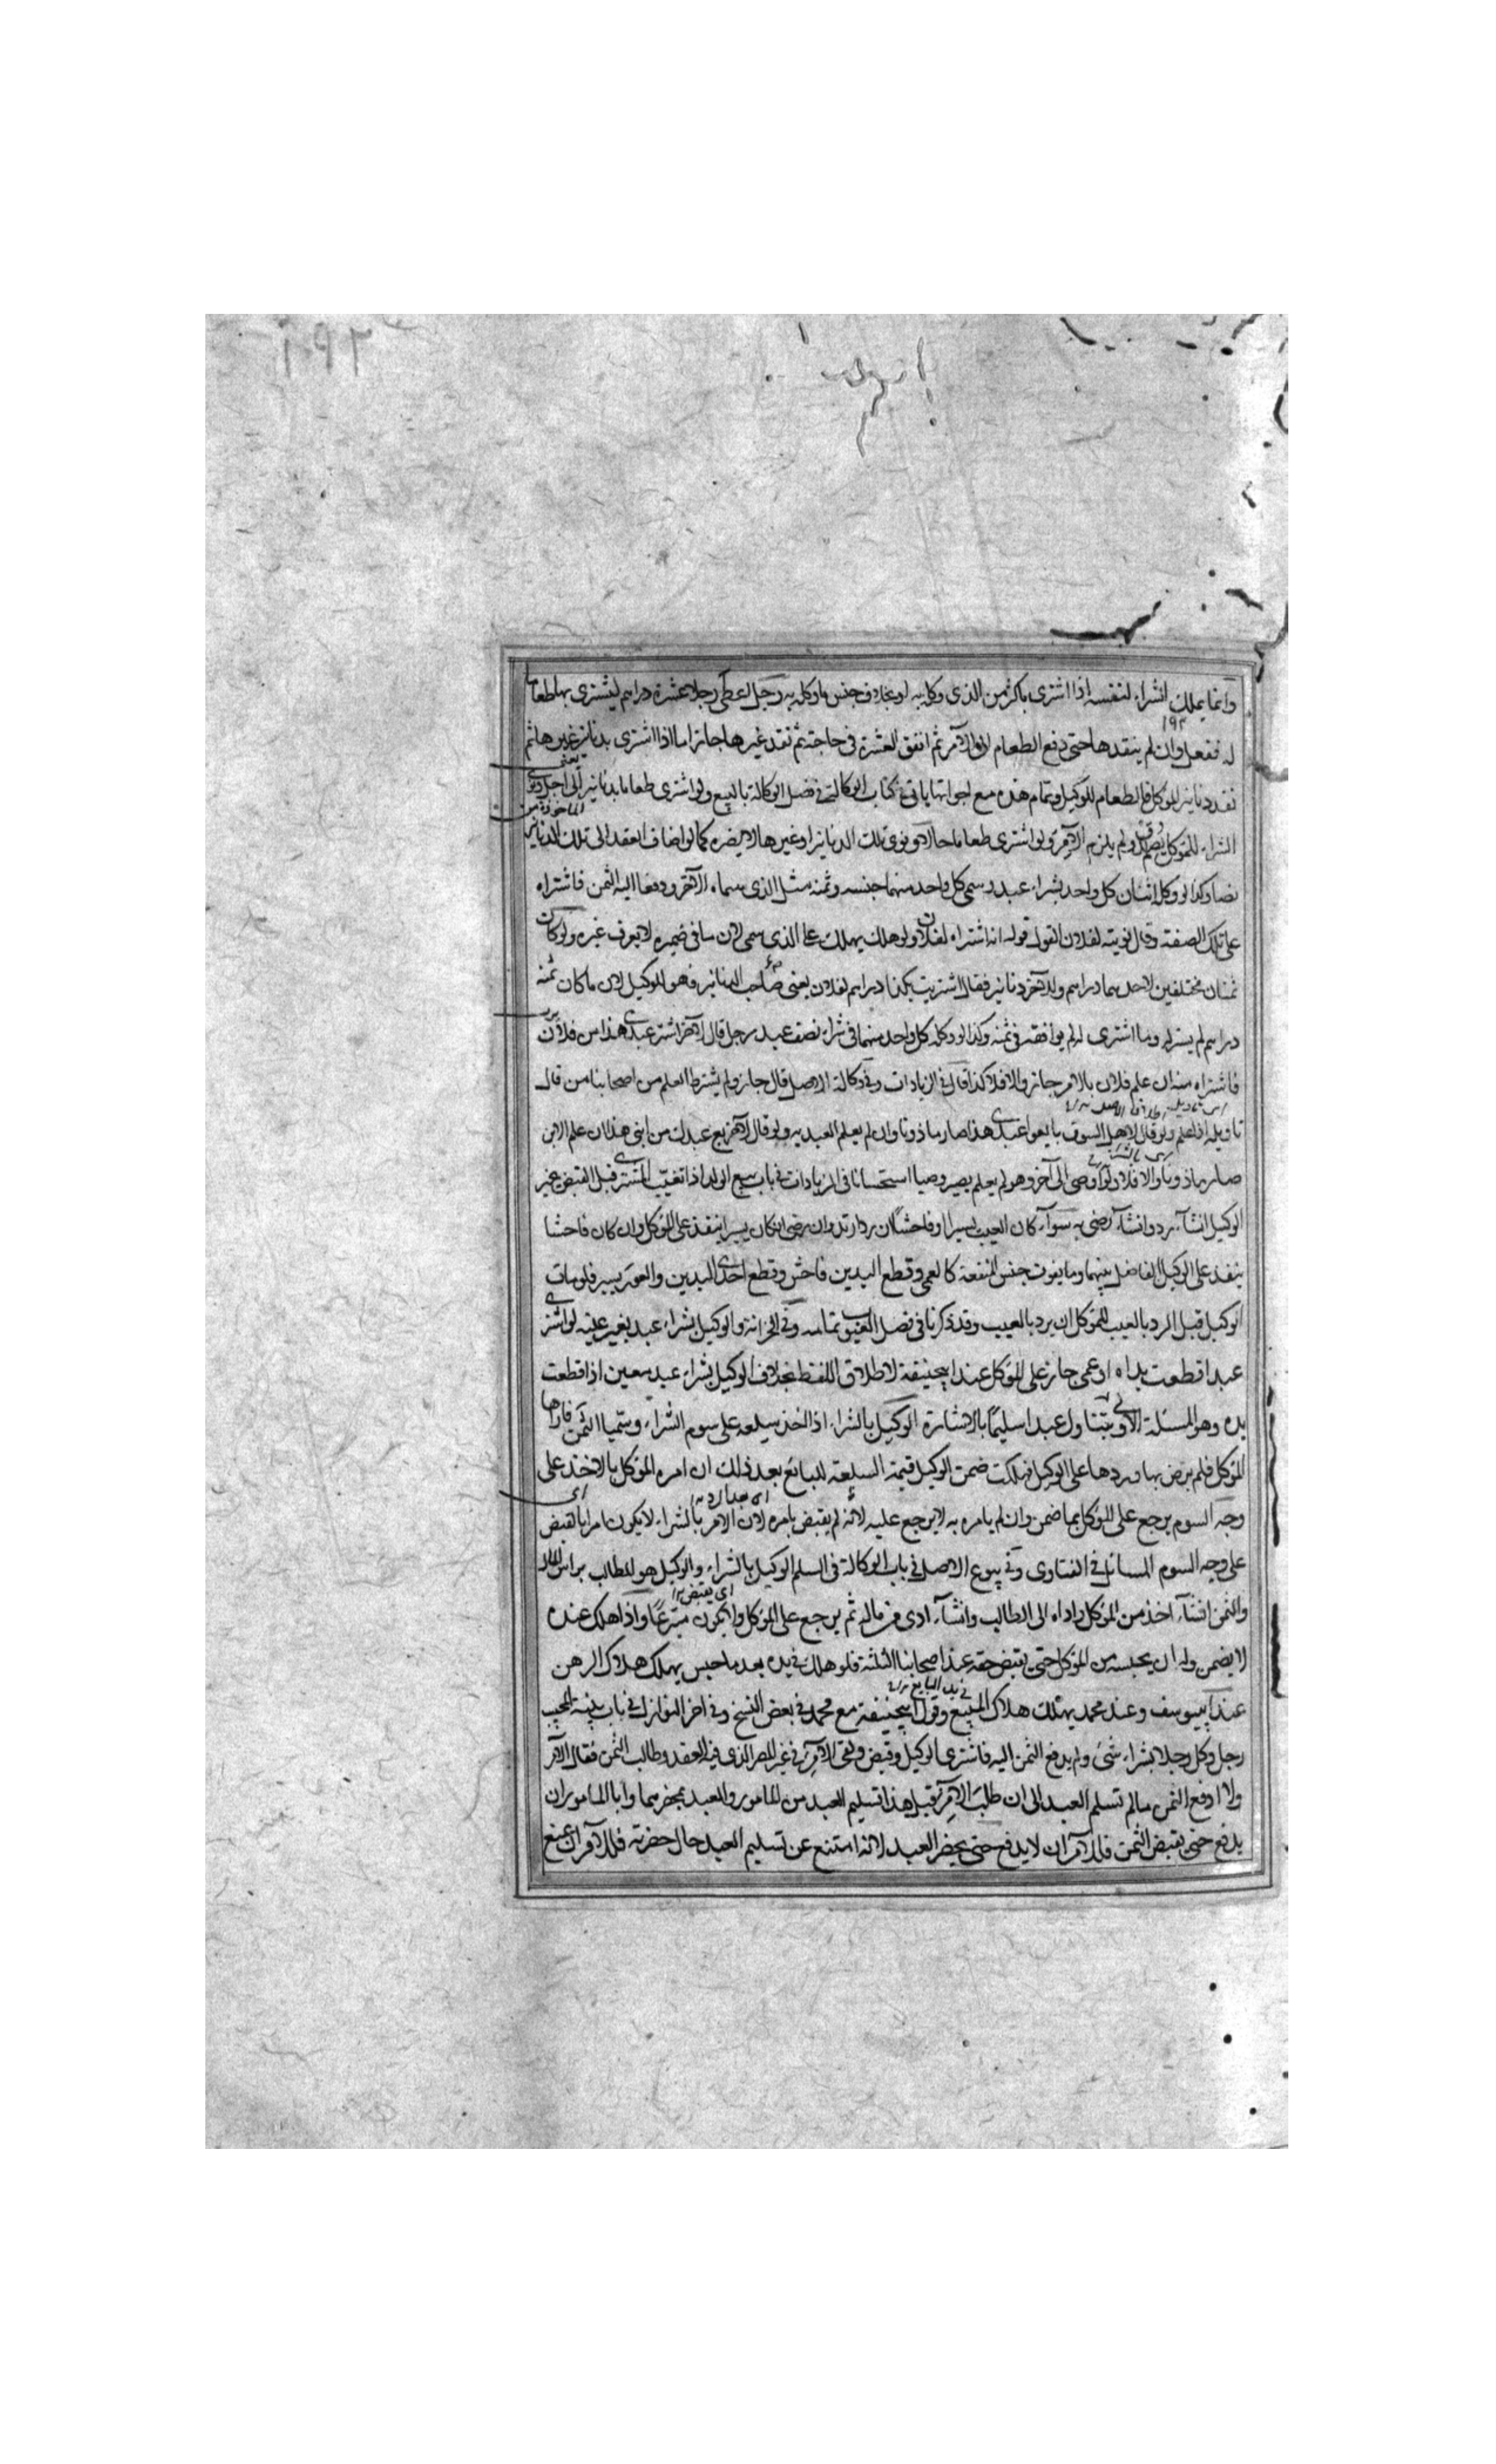 وانما يملك الشراء لنفسه اذا اشترى باكثر من الذى وكل به او بخلاف جنس ما وكل به رجل اعطى رجلا عشرة دراهم ليشترى بها طعاما
له ففعل وان لم ينقدها حتى دفع الطعام الى الآمر ثم انفق العشرة فى حاجته ثم نقد غيرها جاز اما اذا اشترى بدنانير غيرها ثم
نقد دنانير الموكل فالطعام للوكيل وتمام هذه مع اخواتها ياتى فى كتاب الوكالة فى فصل الوكالة بالبيع ولو اشترى طعاما بدنانير الى اجل ونوى
الشراء للموكل يصدق ولم يلزم الآمر ولو اشترى طعاما حالا ونوى تلك الدنانير او غيرها لا يضره كما لو اضاف العقد الى تلك الدنانير
نصا وكذا لو وكل اثنان كل واحد بشراء عبد وسمى كل واحد منهما جنسه وثمنه مثل الذى سماه الآخر ودفعا اليه الثمن فاشتراه
على تلك الصفة وقال نويته لفلان القول قوله انه اشتراه لفلان ولو هلك يهلك على الذى سمى لان ما فى ضميره لا يعرف غيره ولو كان
ثمنان مختلفين لاحدهما دراهم وللآخر دنانير فقال اشتريت بكذا دراهم لفلان يعنى صاحب الدنانير فهو للوكيل لان ما كان ثمنه
دراهم لم يشتر له وما اشترى له لم يوافقه فى ثمنه وكذا لو وكله كل واحد منهما فى شراء نصف عبد رجل قال لآخر اشتر عبدى هذا من فلان
فاشتراه منه ان علم فلان بالامر جاز والا فلا كذا قال فى الزيادات وفى وكالة الاصل قال جاز ولم يشترط العلم من اصحابنا من قال
تاويله اذا علم ولو قال لاهل السوق بايعوا عبدى هذا صار ماذونا وان لم يعلم العبد به ولو قال لآخر بع عبدك من ابنى هذا ان علم الابن
صار ماذونا والا فلا ولو اوصى الى آخر وهو لم يعلم يصير وصيا استحسانا فى الزيادات فى باب بيع الولد اذا تعيب المشترى قبل القبض خير
الوكيل ان شاء رد وان شاء رضى به سواء كان العيب يسيرا او فاحشا فان رد ارتد وان رضى ان كان يسيرا ينفذ على الموكل وان كان فاحشا
ينفذ على الوكيل الفاصل بينهما وما يفوت جنس المنفعة كالعمى وقطع اليدين فاحش وقطع احدى اليدين والعور يسير فلو مات
الوكيل قبل الرد بالعيب للموكل ان يرد بالعيب وقد ذكرنا فى فصل العيوب تمامه وفى الخزانة والوكيل بشراء عبد بغير عينه لو اشترى
عبدا قطعت يداه او عمى جاز على الموكل عند ابيحنيفة لاطلاق اللفظ بخلاف الوكيل بشراء عبد معين اذا قطعت
يده وهو المسئلة الاولى يتناول عبدا سليما بالاشارة الوكيل بالشراء اذا اخذ سلعة على سوم الشراء وسميا الثمن فاراها
الموكل فلم يرض بها وردها على الوكيل فهلكت ضمن الوكيل قيمة السلعة للبائع بعد ذلك ان امره الموكل بالاخذ على
وجه السوم يرجع على الموكل بما ضمن وان لم يامره به لا يرجع عليه لانه لم يقبض بامره لان الامر بالشراء لا يكون امرا بالقبض
على وجه السوم المسائل فى الفتاوى وفى بيوع الاصل فى باب الوكالة فى السلم الوكيل بالشراء والوكيل هو المطالب براس المال
والثمن ان شاء اخذ من الموكل واداه الى الطالب وان شاء ادى من ماله ثم يرجع على الموكل ولا يكون متبرعا واذا هلك عنده
لا يضمن وله ان يحبسه من الموكل حتى يقبض حقه عند اصحابنا الثلثة فلو هلك فى يده بعد ما حبس يهلك هلاك الرهن
عند ابييوسف وعند محمد يهلك هلاك المبيع وقول ابيحنيفة مع محمد فى بعض النسخ وفى اخر النوازل فى باب
رجل وكل رجلا بشراء شئ ولم يدفع الثمن اليه فاشترى الوكيل وقبض ولقى الآمر فى غير المصر الذى فيه العقد وطالب الثمن فقال الآمر
ولا ادفع الثمن ما لم تسلم العبد الى ان طلب الآمر قبل هذا تسليم العبد من المامور والعبد بحضرتهما وابا المامور ان
يدفع حتى يقبض الثمن فللآمر ان لا يدفع حتى يحضر العبد لانه امتنع عن تسليم العبد حال حضرته فللآمر ان يمنع